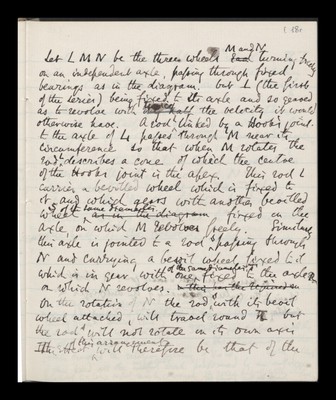 Let L M N be the three wheels M and N turning freely
on an independent axle, passing through fixed
bearings as in the diagram. but L (the first
of the series) being fixed to its axle and so geared
as to revolve with half the velocity it would
otherwise have. A rod linked by a Hooks joint
to the axle of L, passes through M near its
circumference so that when M rotates the
rod describes a cone of which the centre
of the Hooks joint is the apex. This rod L
carries a bevilled wheel which is fixed to
it and which gears with another bevilled
wheel of the same diameter as in the diagram fixed in the
axle, on which M revolves freely. Similarly
this axle is jointed to a rod passing through
N and carrying a bevil wheel fixed to it
which is in gear, with one fixed in the axle
on which N revolves.
On the rotation of N the rod, with its bevil
wheel attached, will travel round but
the rod will not rotate in its own axis
this arrangement
will therefore be that of the